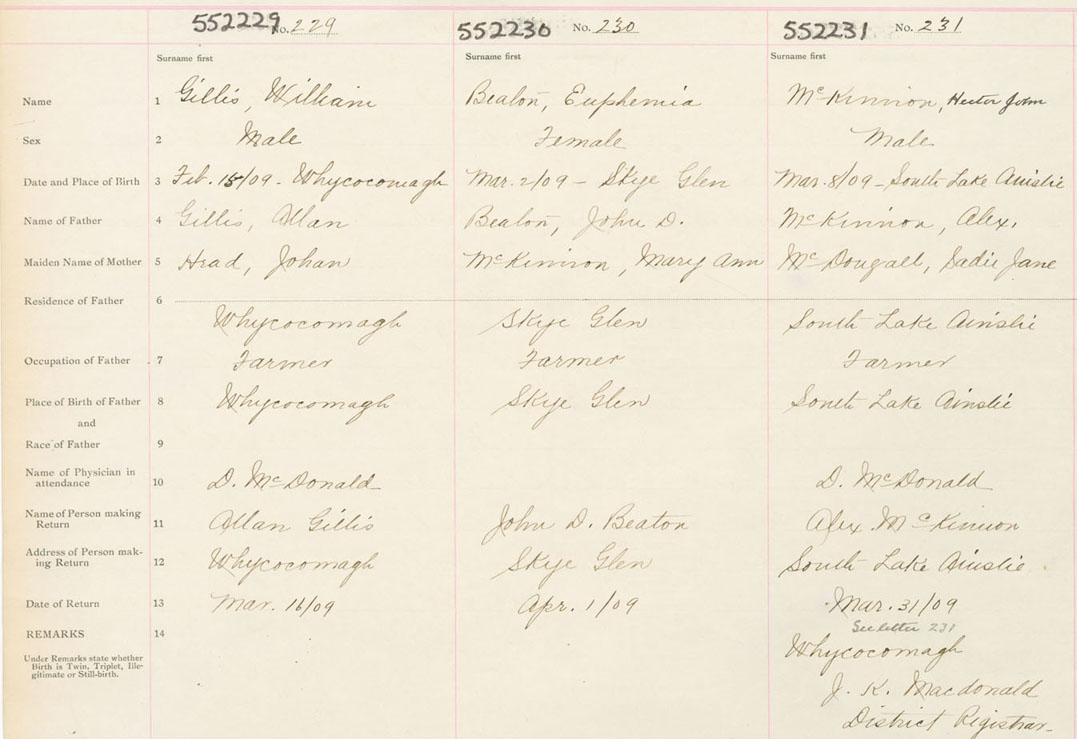 552229 No. 229 552230 No. 230 552231 No. 231
Surname first Surname first Surname first
Name 1 Gillis, William Beaton, Euphemia McKinnon, Hector John
Sex 2 Male Female Male
Date and Place of Birth 3 Feb. 15/09 - Whycocomagh Mar. 2/09 - Skye Glen Mar. 8/09 - South Lake Ainslie
Name of Father 4 Gillis, Allan Beaton, John D. McKinnon, Alex.
Maiden Name of Mother 5 Head, Johan McKinnon, Mary Ann McDougall, Sadie Jane
Residence of Father 6
Whycocomagh Skye Glen South Lake Ainslie
Occupation of Father 7 Farmer Farmer Farmer
Place of Birth of Father 8 Whycocomagh Skye Glen South Lake Ainslie
and
Race of Father 9
Name of Physician in
attendance 10 D. McDonald D. McDonald
Name of Person making
Return 11 Allan Gillis John D. Beaton Alex McKinnon
Address of Person mak-
ing Return 12 Whycocomagh Skye Glen South Lake Ainslie
Date of Return 13 Mar. 16/09 Apr. 1/09 Mar. 31/09
See letter 231
REMARKS 14
Whycocomagh
Under Remarks state whether
Birth is Twin, Triplet, Ille-
gitimate or Still-birth.
J. K. Macdonald
District Registrar